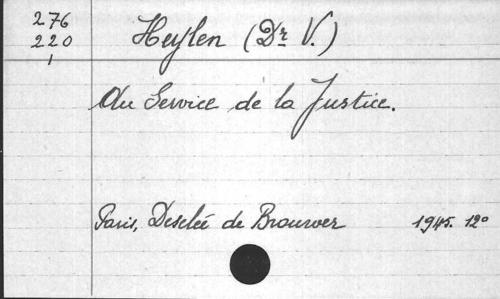 276
220
1
Heylen (Dr V.)
Au Service de la Justice.
Paris, Desclée de Brouwer 1945. 12°